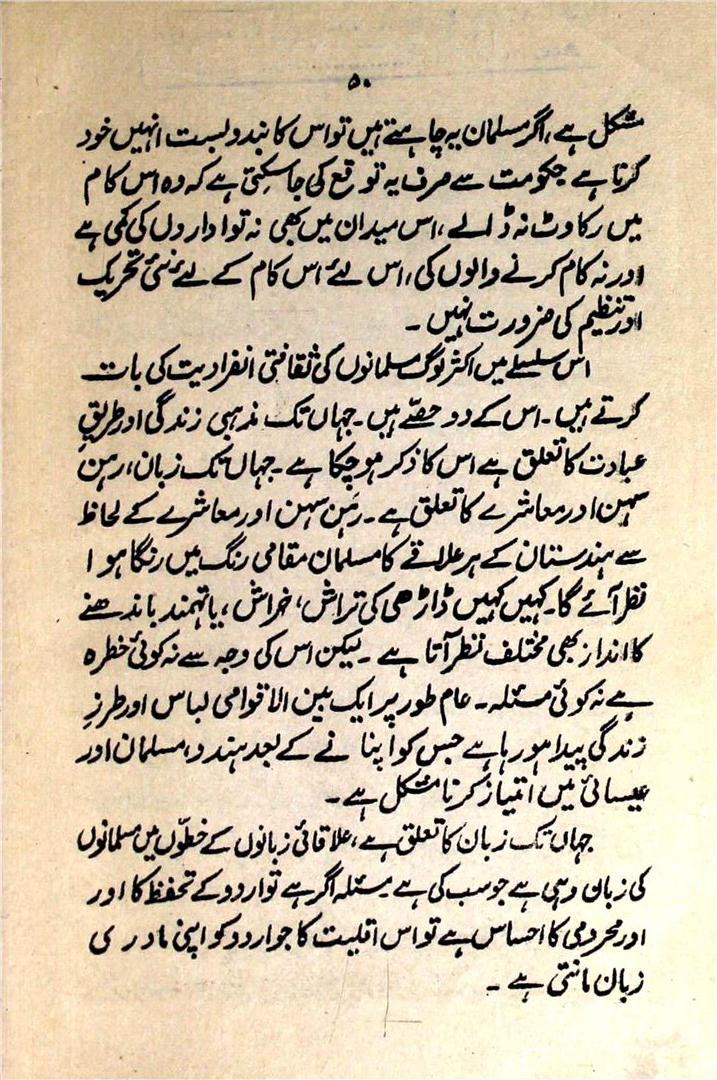 ۵۰
مشکل ہے، اگر مسلمان یہ چاہتے ہیں تو اس کا بندوبست انہیں خود
کرنا ہے حکومت سے صرف یہ توقع کی جاسکتی ہے کہ وہ اس کام
میں رکاوٹ نہ ڈالے، اس میدان میں بھی نہ تو اداروں کی کمی ہے
اور نہ کام کرنے والوں کی، اس لئے اس کام کے لئے نئی تحریک
اور تنظیم کی ضرورت نہیں ۔
اس سلسلے میں اکثر لوگ مسلمانوں کی ثقافتی انفرادیت کی بات
کرتے ہیں ۔ اس کے دو حصّے ہیں ۔ جہاں تک مذہبی زندگی اور طریقِ
عبادت کا تعلق ہے اس کا ذکر ہو چکا ہے ۔ جہاں تک زبان، رہن
سہن اور معاشرے کا تعلق ہے ۔ رہن سہن اور معاشرے کے لحاظ
سے ہندستان کے ہر علاقے کا مسلمان مقامی رنگ میں رنگا ہوا
نظر آئے گا ۔ کہیں کہیں ڈاڑھی کی تراش، خراش، یا تہمند باندھنے
کا انداز بھی مختلف نظر آتا ہے ۔ لیکن اس کی وجہ سے نہ کوئی خطرہ
ہے نہ کوئی مسئلہ ۔ عام طور پر ایک بین الاقوامی لباس اور طرزِ
زندگی پیدا ہو رہا ہے جس کو اپنا نے کے بعد ہندو، مسلمان اور
عیسائی میں امتیاز کرنا مشکل ہے ۔
جہاں تک زبان کا تعلق ہے، علاقائی زبانوں کے خطّوں میں مسلمانوں
کی زبان وہی ہے جو سب کی ہے ۔ مسئلہ اگر ہے تو اردو کے تحفظ کا اور
اور محرومی کا احساس ہے تو اس اقلیت کا جو اردو کو اپنی مادری
زبان مانتی ہے ۔